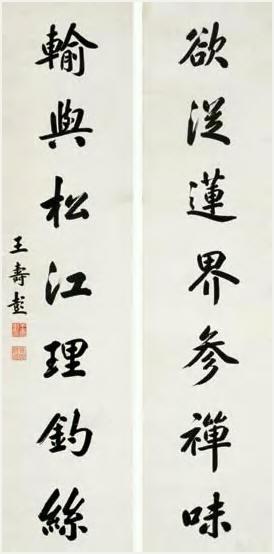 欲从蓮界參禪味
輸與松江理釣絲
王壽彭